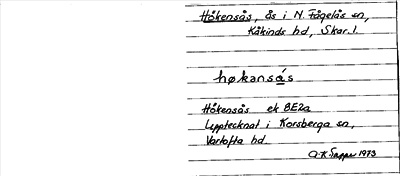 Hökensås, ås i N. Fågelås sn,
Kåkinds hd, Skar. l.
høkansás
Hökensås ek 8E2a
Upptecknat i Korsberga sn,
Vartofta hd.
1973